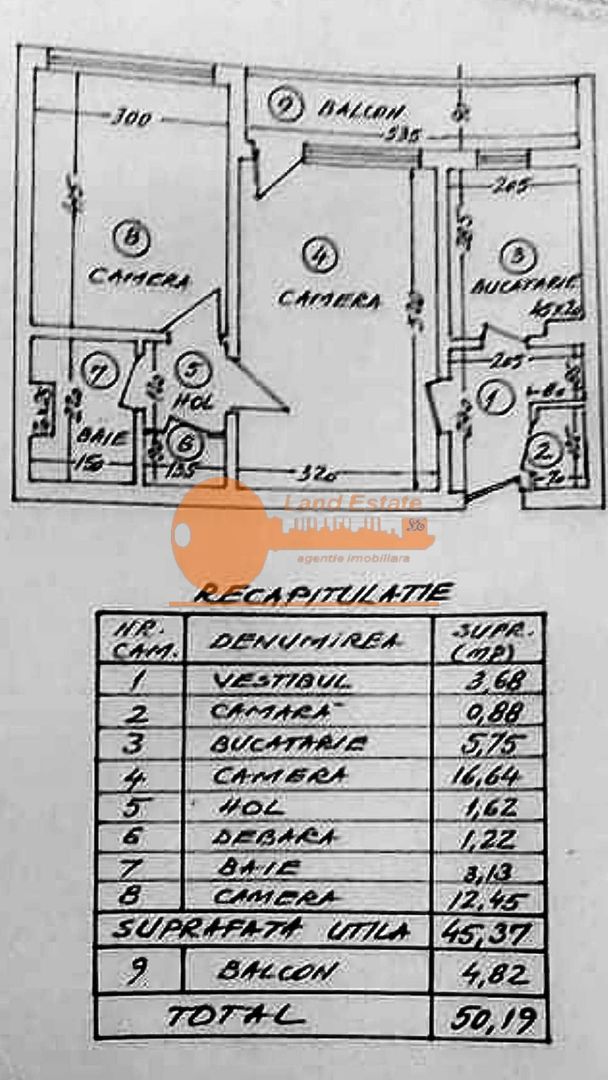 9 BALCON
300
535
205
8
CAMERA
4
CAMERA
3
BUCATARIE
45x20
520
205
7
5
HOL
1
BAIE
6
2
150
135
320
Land Estate
agentie imobiliara
RECAPITULATIE
NR. CAM. DENUMIREA SUPR. (MP)
1 VESTIBUL 3,68
2 CAMARĂ 0,88
3 BUCATARIE 5,75
4 CAMERA 16,64
5 HOL 1,62
6 DEBARA 1,22
7 BAIE 3,13
8 CAMERA 12,45
SUPRAFATA UTILA 45,37
9 BALCON 4,82
TOTAL 50,19